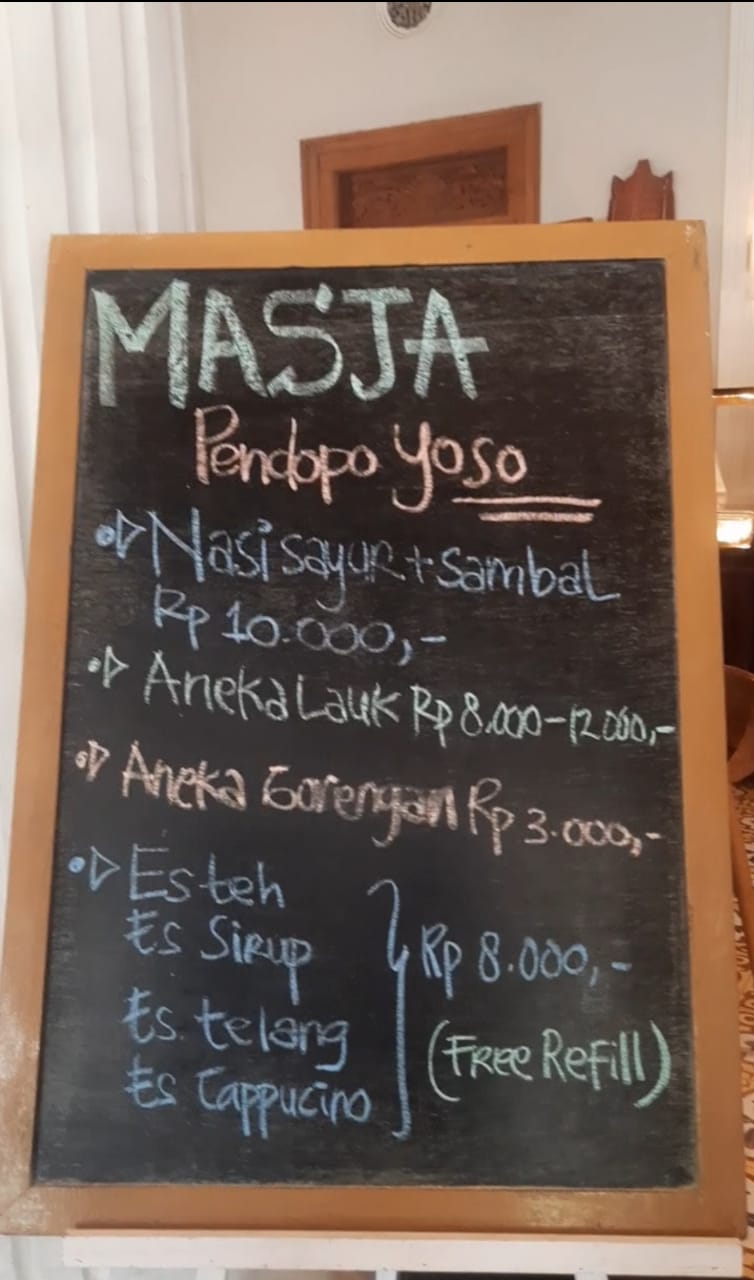 MASJA
Pendopo Yoso
Nasi sayur + sambal
Rp 10.000,-
Aneka Lauk Rp 8.000-12.000,-
Aneka Gorengan Rp 3.000,-
Es teh
Es Sirup
Rp 8.000,-
Es. telang
(Free Refill)
Es Cappucino